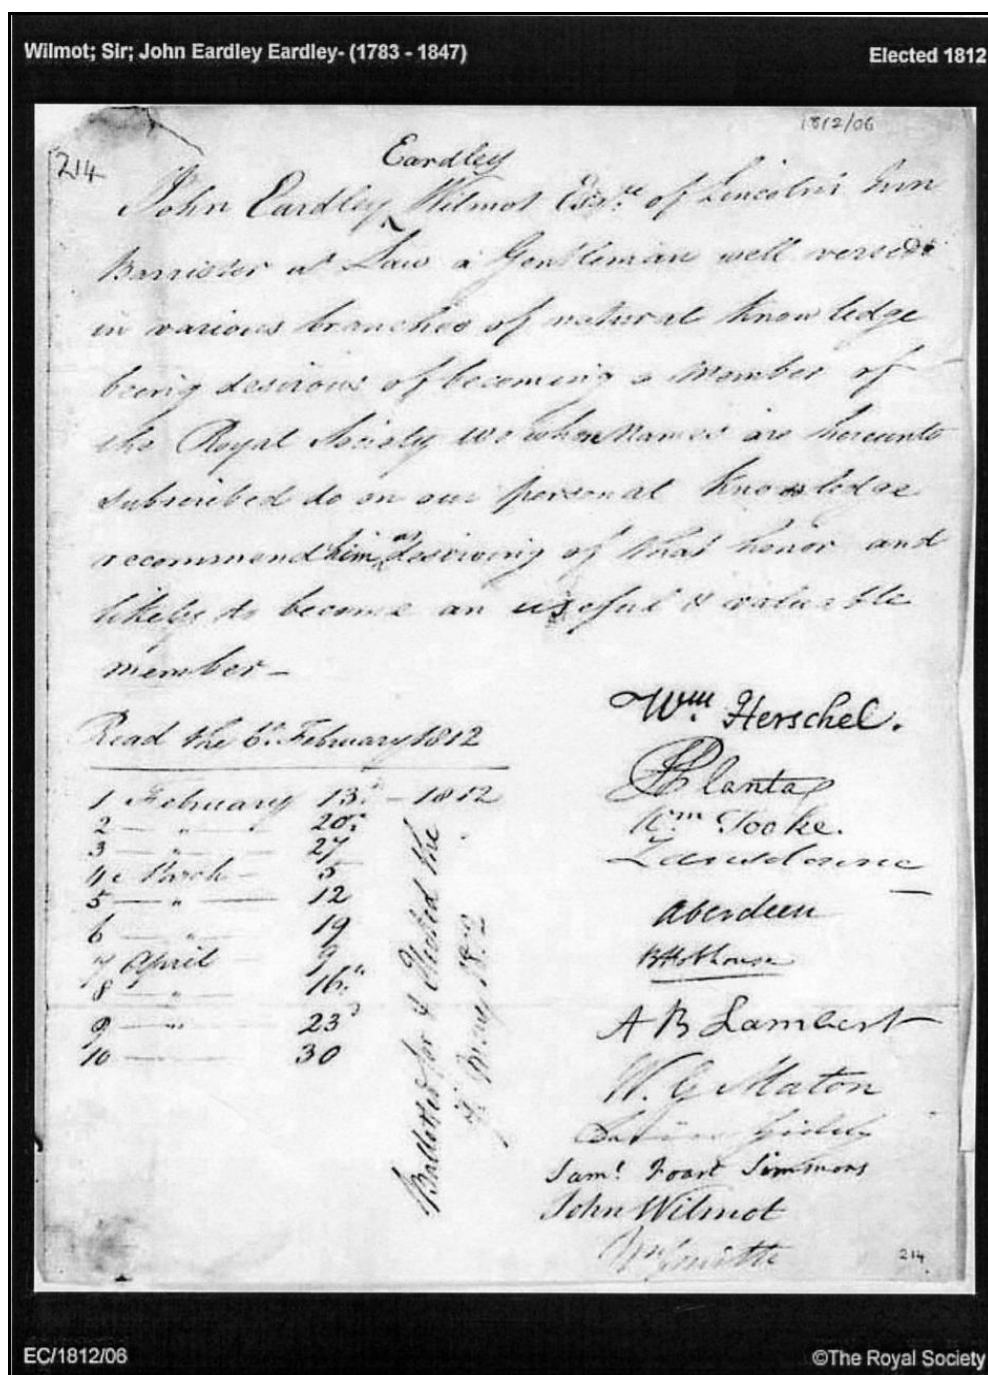 Wilmot; Sir; John Eardley Eardley- (1783 - 1847)
Elected 1812
1812/06
214
Eardley
John Eardley ‸ Wilmot Esqre. of Lincoln's Inn
Barrister at Law a Gentleman well versed
in various branches of natural knowledge
being desirous of becoming a Member of
the Royal Society we whose Names are hereunto
subscribed do on our personal knowledge
as
recommend him ‸ deserving of that honor and
likely to become an useful & valuable
member –
Read the 6th. February 1812
1 February 13th. – 1812
2 — " — 20th.
3 — " — 27
4 March — 5
5 — " — 12
6 — " — 19
7 April — 9
8 — " — 16th.
9 — " — 23d
10 — 30
Ballotted for & Elected the
7th May 1812
Wm. Herschel.
J Planta
Wm Tooke.
Lansdowne
Aberdeen
B Hobhouse
A B Lambert
W. G Maton
Davies Giddy
Saml. Foart Simmons
John Wilmot
Wm Smith
214
EC/1812/06
©The Royal Society